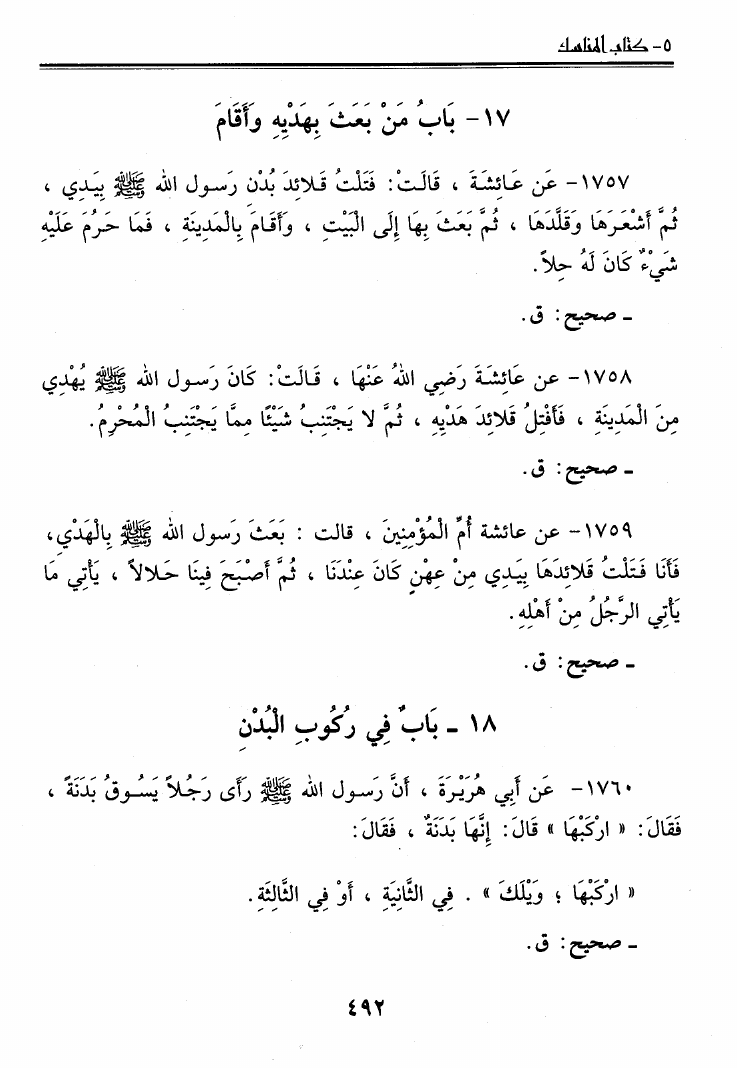 ٥- كتاب المناسك
١٧- بَابُ مَنْ بَعَثَ بِهَدْيِهِ وَأَقَامَ
١٧٥٧- عَن عَائِشَةَ ، قَالَتْ: فَتَلْتُ قَلائِدَ بُدْنِ رَسول الله ﷺ بِيَدِي ،
ثُمَّ أَشْعَرَهَا وَقَلَّدَهَا ، ثُمَّ بَعَثَ بِهَا إِلَى الْبَيْتِ ، وَأَقَامَ بِالْمَدِينَةِ ، فَمَا حَرُمَ عَلَيْهِ
شَيْءٌ كَانَ لَهُ حِلاًّ.
ـ صحيح: ق.
١٧٥٨- عن عَائِشَةَ رَضِي اللهُ عَنْهَا ، قَالَتْ: كَانَ رَسول الله ﷺ يُهْدِي
مِنَ الْمَدِينَةِ ، فَأَفْتِلُ قَلائِدَ هَدْيِهِ ، ثُمَّ لا يَجْتَنِبُ شَيْئًا مِمَّا يَجْتَنِبُ الْمُحْرِمُ.
ـ صحيح: ق.
١٧٥٩- عن عائشة أُمِّ الْمُؤْمِنِينَ ، قالت : بَعَثَ رَسول الله ﷺ بِالْهَدْيِ،
فَأَنَا فَتَلْتُ قَلائِدَهَا بِيَدِي مِنْ عِهْنٍ كَانَ عِنْدَنَا ، ثُمَّ أَصْبَحَ فِينَا حَلالاً ، يَأْتِي مَا
يَأْتِي الرَّجُلُ مِنْ أَهْلِهِ.
ـ صحيح: ق.
١٨ ـ بَابٌ فِي رُكُوبِ الْبُدْنِ
١٧٦٠- عَن أَبِي هُرَيْرَةَ ، أَنَّ رَسول الله ﷺ رَأَى رَجُلاً يَسُوقُ بَدَنَةً ،
فَقَالَ: « ارْكَبْهَا » قَالَ: إِنَّهَا بَدَنَةٌ ، فَقَالَ:
« ارْكَبْهَا ؛ وَيْلَكَ » . فِي الثَّانِيَةِ ، أَوْ فِي الثَّالِثَةِ.
ـ صحيح: ق.
٤٩٢